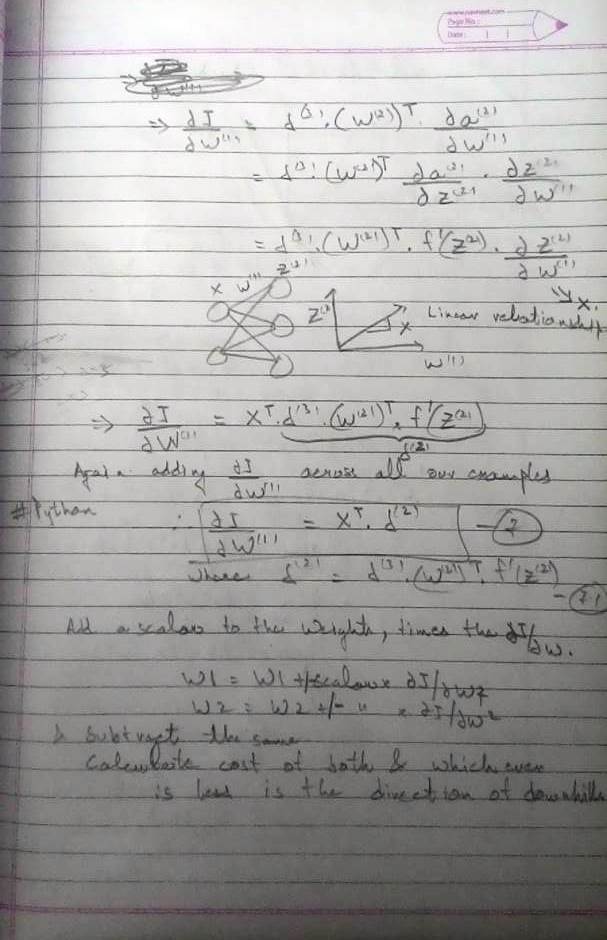 www.navneet.com
Page No.:
Date:
∂J
∂W⁽¹⁾
⇒ ∂J/∂W⁽¹⁾ = δ⁽³⁾·(W⁽²⁾)ᵀ · ∂a⁽²⁾/∂W⁽¹⁾
= δ⁽³⁾·(W⁽²⁾)ᵀ ∂a⁽²⁾/∂z⁽²⁾ · ∂z⁽²⁾/∂W⁽¹⁾
= δ⁽³⁾·(W⁽²⁾)ᵀ · f'(z⁽²⁾) · ∂z⁽²⁾/∂W⁽¹⁾
↘ X
X W⁽¹⁾ Z⁽²⁾
Z⁽²⁾ X Linear relationship
W⁽¹⁾
⇒ ∂J/∂W⁽¹⁾ = Xᵀ·δ⁽³⁾·(W⁽²⁾)ᵀ·f'(z⁽²⁾)
δ⁽²⁾
Again adding ∂J/∂W⁽¹⁾ across all our examples
#Python
∴ ∂J/∂W⁽¹⁾ = Xᵀ·δ⁽²⁾ — 7
where δ⁽²⁾ = δ⁽³⁾·(W⁽²⁾)ᵀ·f'(z⁽²⁾)
— 7.1
Add a scalar to the weights, times the ∂J/∂w.
W1 = W1 +/- scalar × ∂J/∂W1
W2 = W2 +/- " × ∂J/∂W2
& Subtract the same
Calculate cost of both & which ever
is less is the direction of downhill